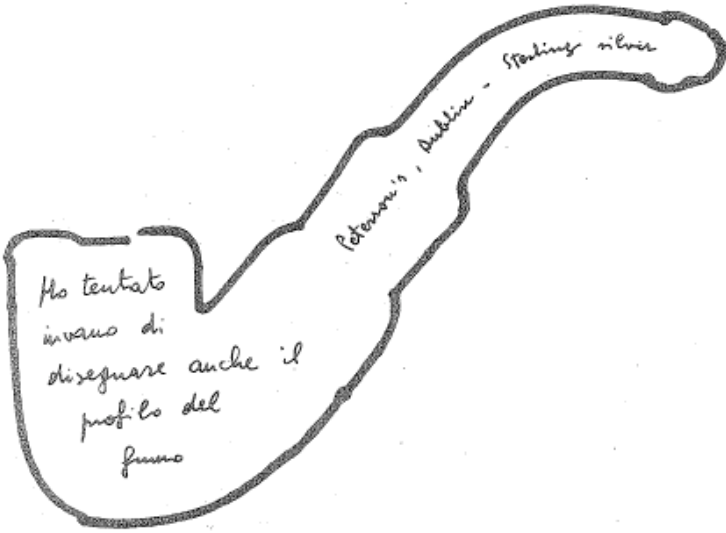 Peterson's, Dublin - Sterling silver
Ho tentato
invano di
disegnare anche il
profilo del
fumo